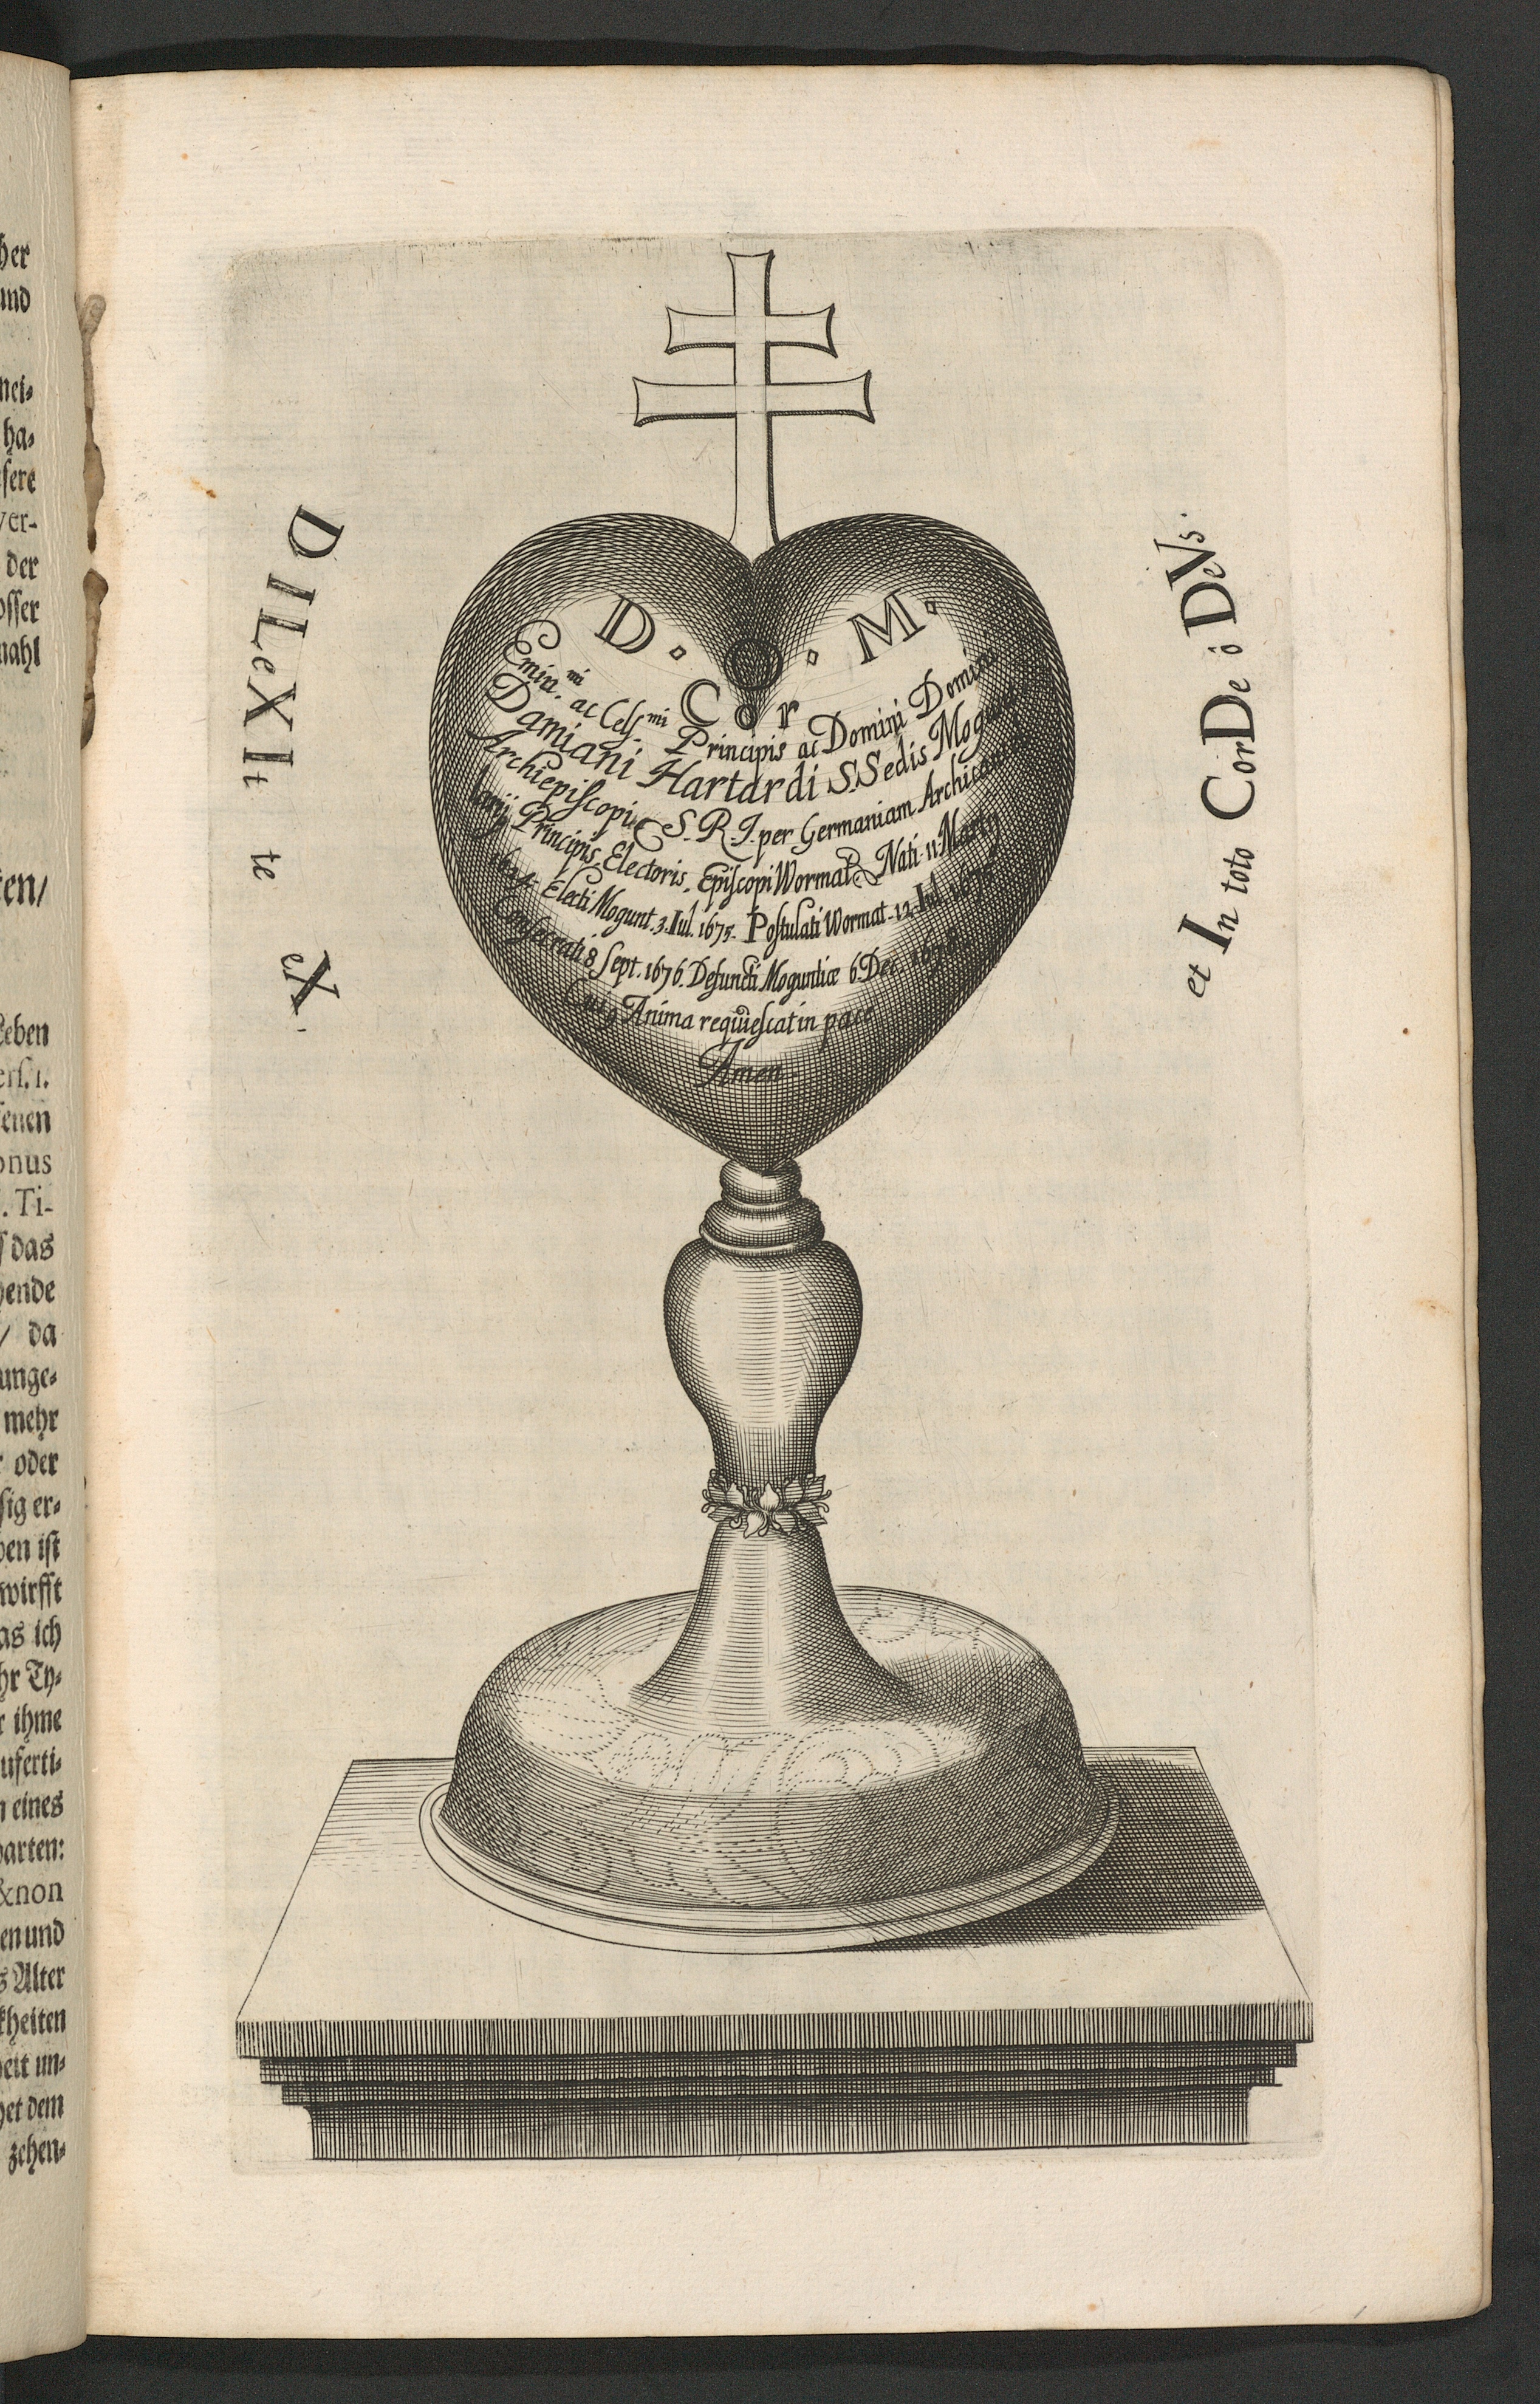 her
und
nei⸗
ha⸗
sere
ver-
der
osser
mahl
ten/
Leben
ers. 1.
senen
onus
. Ti-
das
hende
/ da
unge⸗
mehr
oder
sig er⸗
ben ist
wirfft
as ich
hr Ty⸗
r ihme
uferti⸗
n eines
parten:
&non
en und
s Alter
kheiten
heit un⸗
het dem
zehen⸗
DILeXIt te eX
et In toto CorDe ô DeVs.
D. O. M.
Cor
Emin.mi ac Cels.mi Principis ac Domini Domini
Damiani Hartardi S. Sedis Mogunt.
Archiepiscopi, S. R. I. per Germaniam Archican⸗
larij, Principis Electoris, Episcopi Wormat. Nati 11. Martij
1624. Electi Mogunt. 3. Iul. 1675. Postulati Wormat. 12. Iul. 1675.
Consecrati 8 Sept. 1676. Defuncti Moguntiæ 6. Dec. 1678.
Cuiꝰ Anima requiescat in pace
Amen